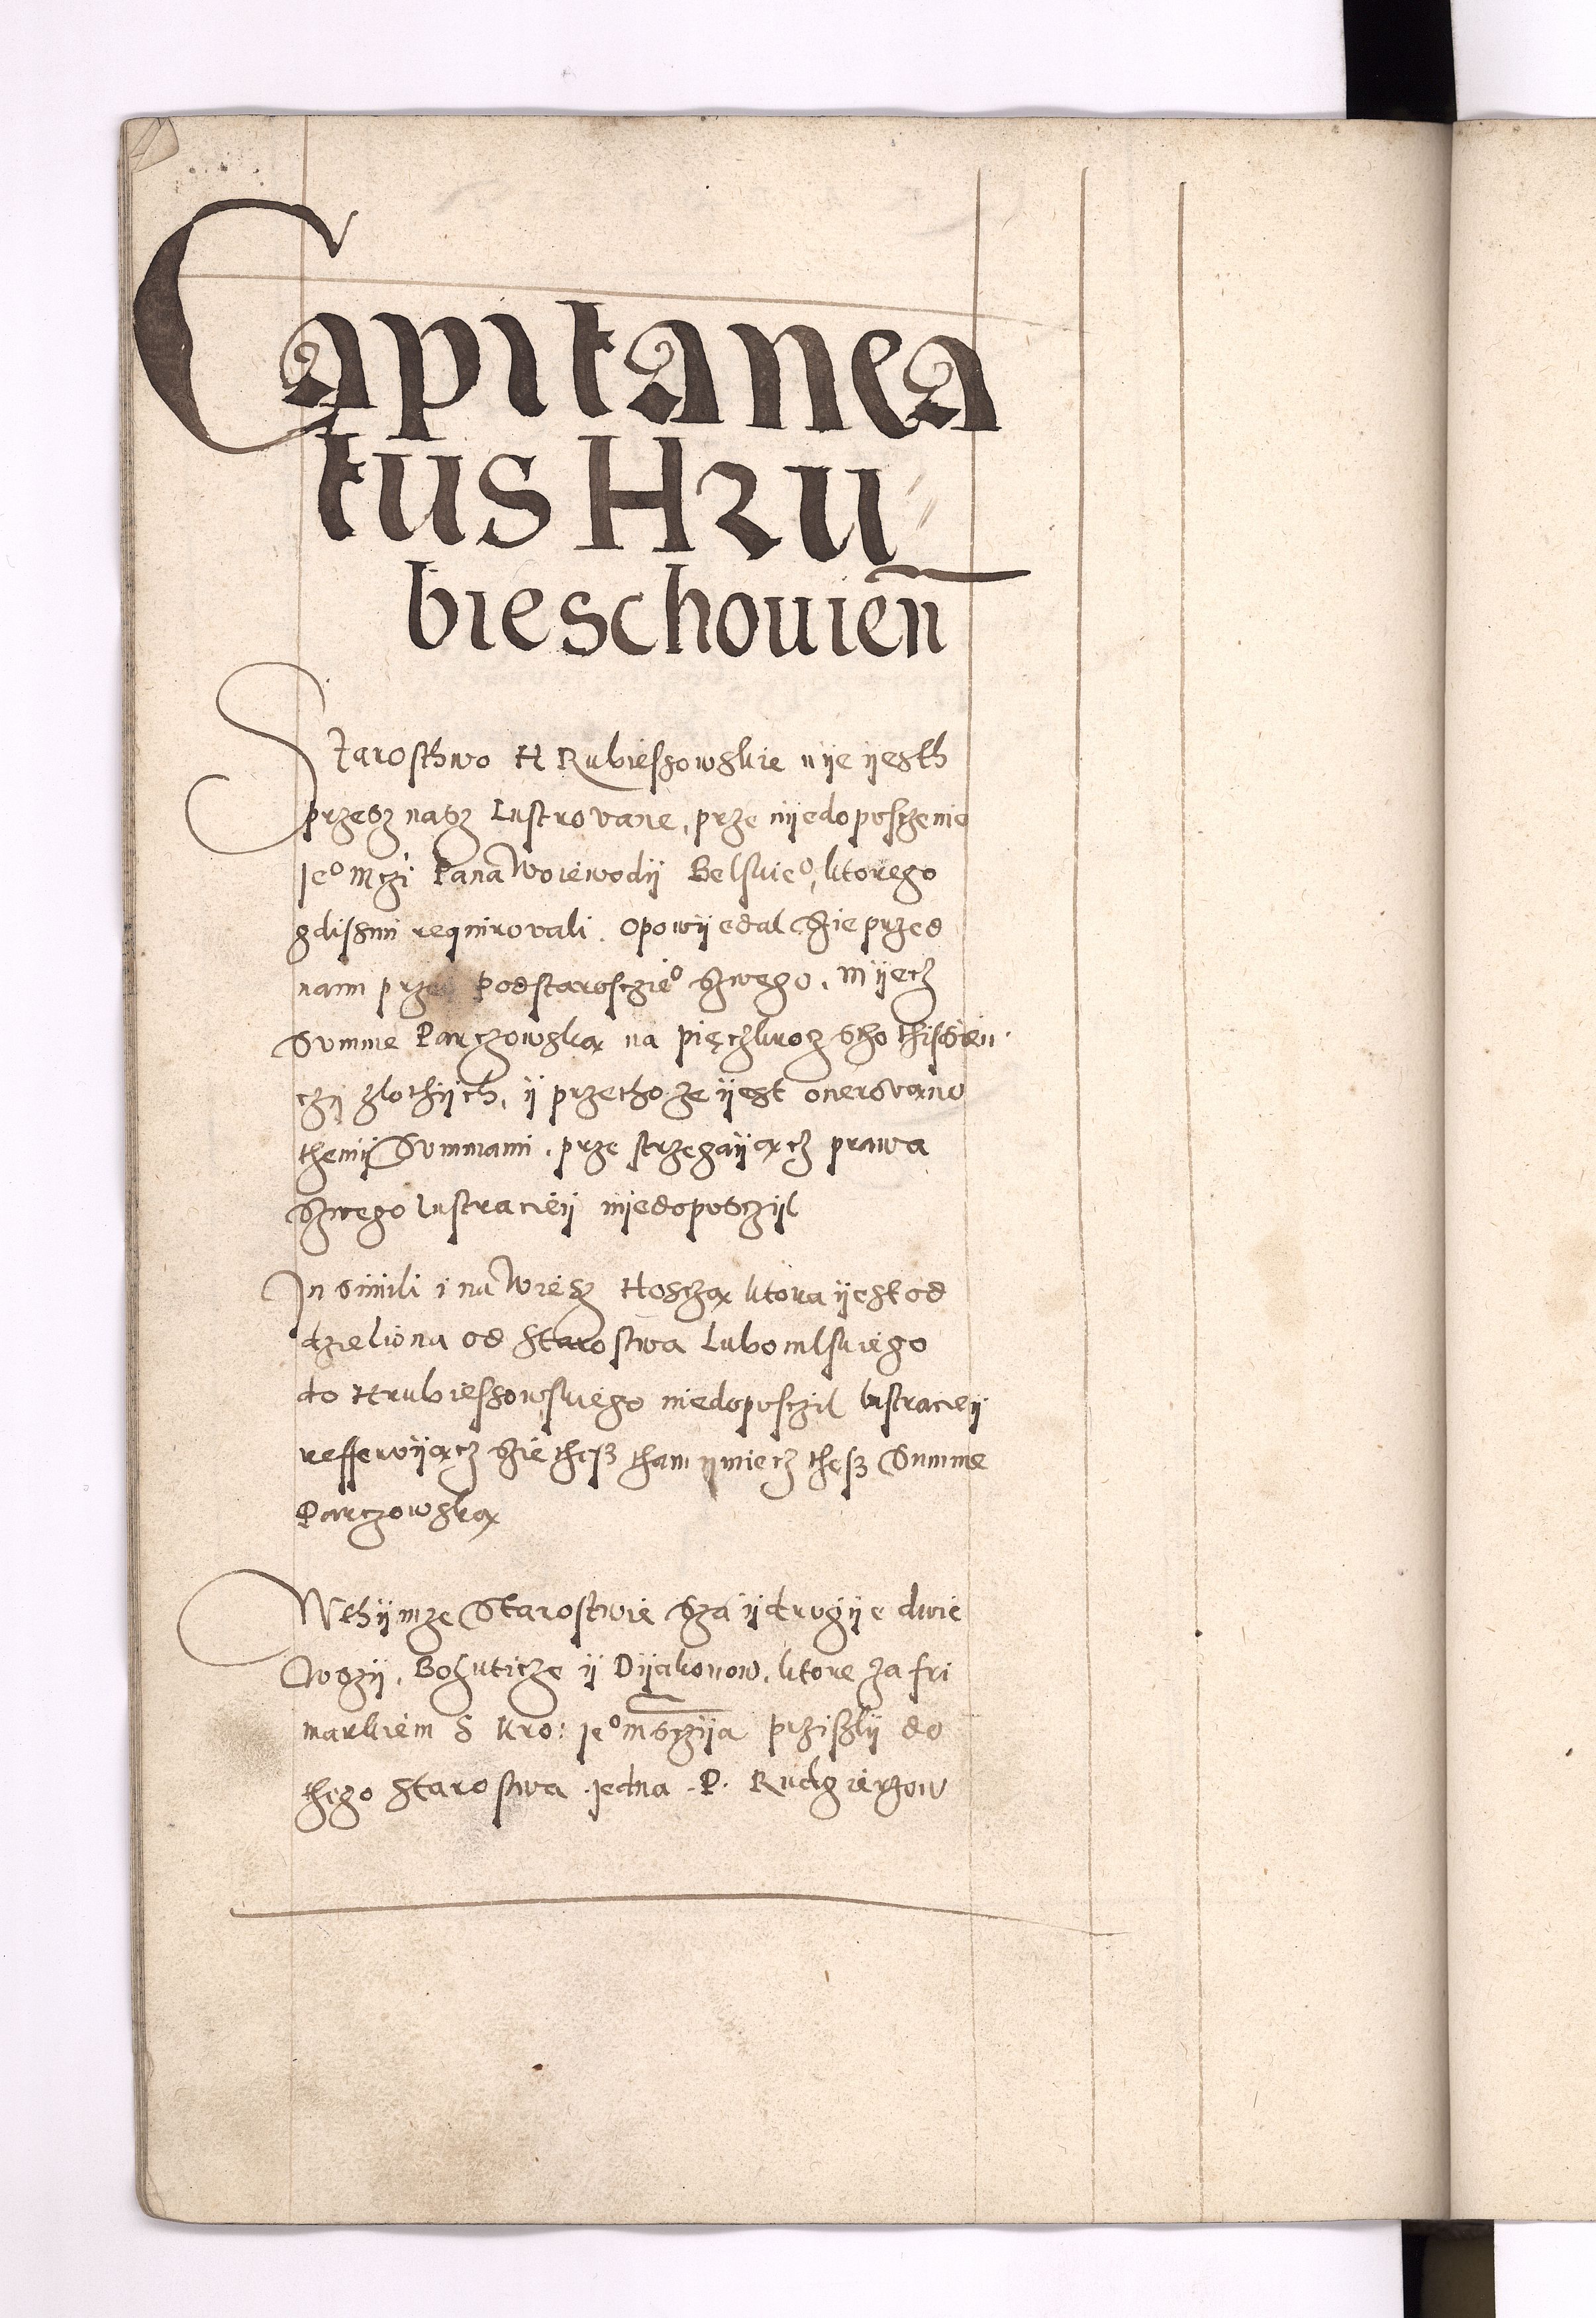 Capitanea
tus Hru
bieschouien̄
Starosthwo HRubiessowskie nije ijesth
przesz nasz Lustrovane, prze nijedopusczenie
Jeº Mczi Pana Woiewodij Belskieº, ktorego
gdissmi requirovali. opowijedal szie przed
nami prze Podstarosczieº szwego, mijecz
Summe Parczowską na pięczkroz stho thissien
czij zlothijch, ij przetho ze ijest onerovano
themij Summami, prze strzegaijącz prawa
szwego lustracieij niedopusczijl
In simili i na Wiesz Hosczą ktora ijest od
dzieliona od Starostwa Lubomlskiego
do Hrubiessowskiego niedopusczil lustracieij
refferuijącz szie thesz tham ijmiecz thesz Summe
Parczowską
Wthijmze Starostwie sza ij drugije dwie
wszij. Bohuticze ij Dijakonow, ktore za fri
markiem S Kro: Jeº msczija prziszlij do
thego Starostwa jedna P. Rudgierzow